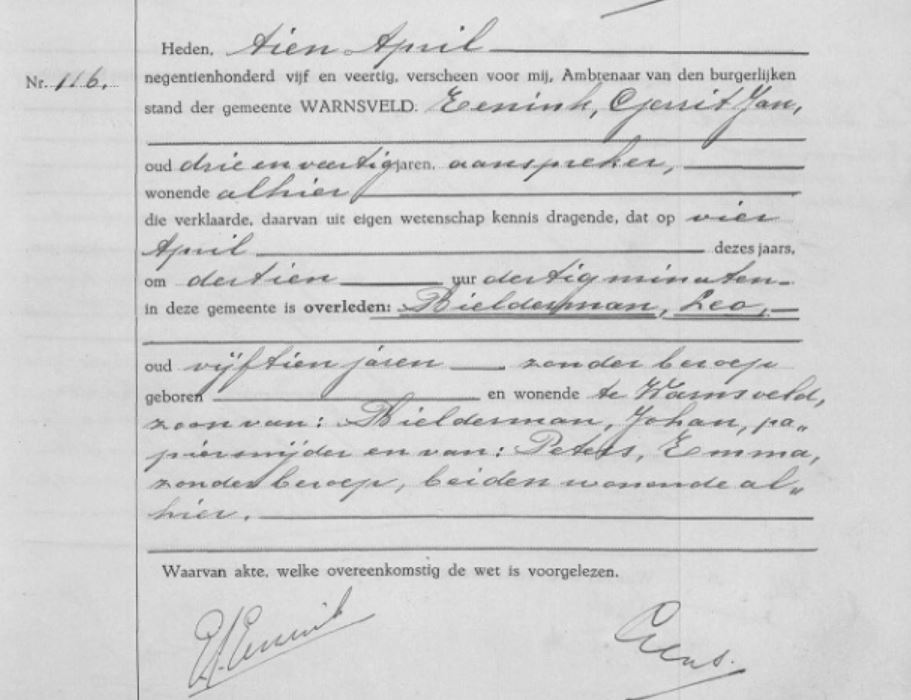 Heden, tien April
Nr. 116.
negentienhonderd vijf en veertig, verscheen voor mij, Ambtenaar van den burgerlijken
stand der gemeente WARNSVELD: Eenink, Gerrit Jan,
oud drie en veertig jaren, aanspreker,
wonende alhier
die verklaarde, daarvan uit eigen wetenschap kennis dragende, dat op vier
April dezes jaars,
om dertien uur dertig minuten
in deze gemeente is overleden: Bielderman, Leo,
oud vijftien jaren zonder beroep
geboren en wonende te Warnsveld,
zoon van: Bielderman, Johan, pa„
piersnijder en van: Peters, Emma,
zonder beroep, beiden wonende al„
hier.
Waarvan akte, welke overeenkomstig de wet is voorgelezen.
Eenink